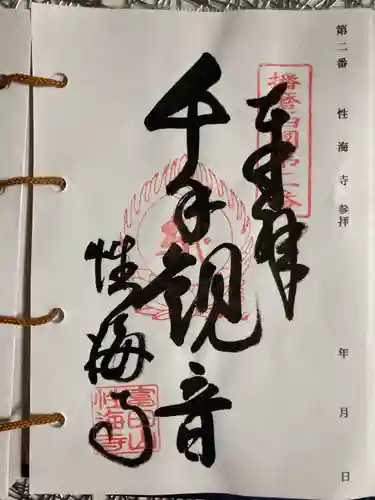 第二番 性海寺 参拝 年 月 日
播磨西國第二番
奉拝
千手観音
性海寺
富日山
性海寺